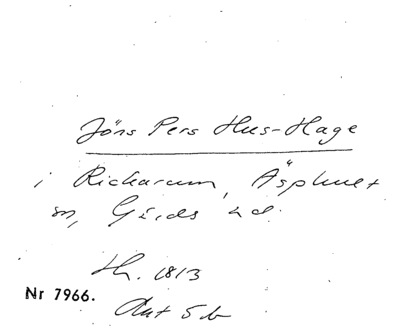 Jöns Pers Hus-Hage
i Rickarum, Äsphult
sn, Gärds hd.
Hr. 1813
Nr 7966.
Akt 5 b